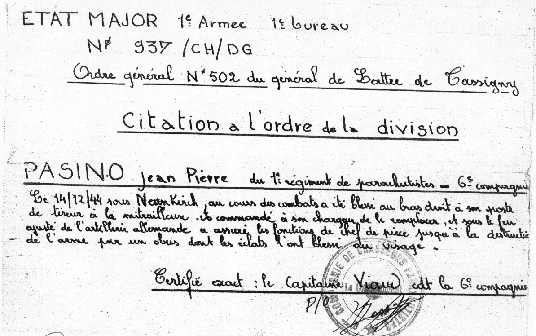 ETAT MAJOR 1e Armee 1e bureau
N° 937/CH/DG
Ordre général N°502 du général de Lattre de Tassigny
Citation a l'ordre de la division
PASINO Jean Pierre du 1e régiment de parachutistes - 6e compagnie
Le 14/12/44 sous au cours des combats a été blessé au bras droit à son poste
de tireur à la mitrailleuse. a commandé à son chargeur de le remplacer, et sous le feu
ajusté de l'artillerie allemande a assuré les fonctions de chef de pièce jusqu'à la destruction
de l'arme par un obus dont les éclats l'ont blessé au visage.
Certifié exact : le Capitaine cdt la 6e compagnie
P/O